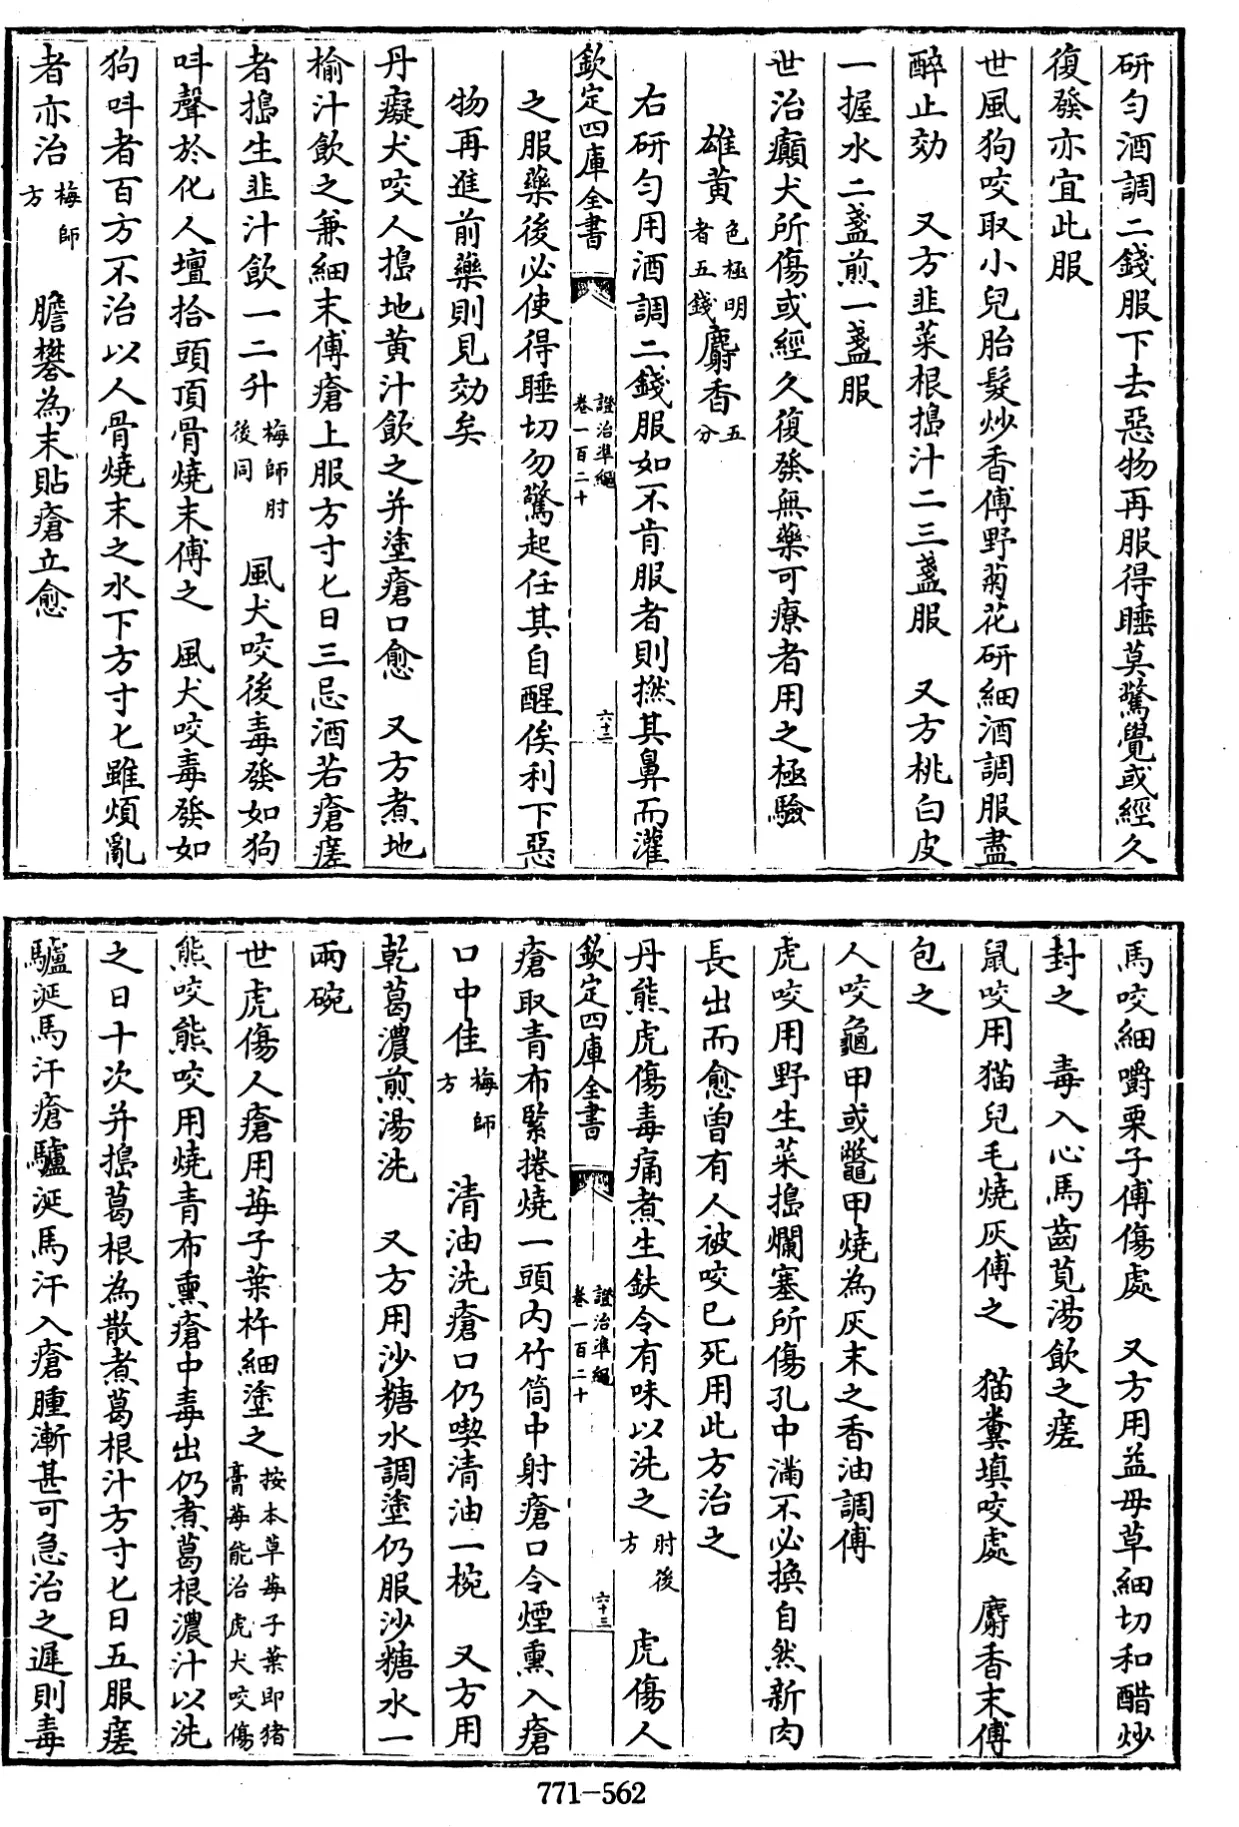 研勻酒調二錢服下去惡物再服得睡莫驚覺或經久
復發亦宜此服
世風狗咬取小兒胎髮炒香傅野菊花研細酒調服盡
醉止効　又方韭菜根搗汁二三盞服　又方桃白皮
一握水二盞煎一盞服
世治癲犬所傷或經久復發無藥可療者用之極驗
雄黄色極明者五錢麝香五分
右研勻用酒調二錢服如不肯服者則撚其鼻而灌
欽定四庫全書　證治準繩卷一百二十　六十二
之服藥後必使得睡切勿驚起任其自醒俟利下惡
物再進前藥則見効矣
丹癡犬咬人搗地黄汁飲之并塗瘡口愈　又方煮地
榆汁飲之兼細末傅瘡上服方寸匕日三忌酒若瘡瘥
者搗生韭汁飲一二升梅師肘後同　風犬咬後毒發如狗
呌聲於化人壇拾頭頂骨燒末傅之　風犬咬毒發如
狗呌者百方不治以人骨燒末之水下方寸匕雖煩亂
者亦治梅師方　膽礬為末貼瘡立愈
馬咬細嚼栗子傅傷處　又方用益母草細切和醋炒
封之　毒入心馬齒莧湯飲之瘥
鼠咬用猫兒毛燒灰傅之　猫糞填咬處　麝香末傅
包之
人咬龜甲或鼈甲燒為灰末之香油調傅
虎咬用野生菜搗爛塞所傷孔中滿不必換自然新肉
長出而愈曽有人被咬已死用此方治之
丹熊虎傷毒痛煮生鉄令有味以洗之肘後方　虎傷人
欽定四庫全書　證治準繩卷一百二十　六十三
瘡取青布緊捲燒一頭内竹筒中射瘡口令煙熏入瘡
口中佳梅師方　清油洗瘡口仍喫清油一椀　又方用
乾葛濃煎湯洗　又方用沙糖水調塗仍服沙糖水一
兩碗
世虎傷人瘡用莓子葉杵細塗之按本草莓子葉即猪膏莓能治虎犬咬傷
熊咬熊咬用燒青布熏瘡中毒出仍煮葛根濃汁以洗
之日十次并搗葛根為散煮葛根汁方寸匕日五服瘥
驢涎馬汗瘡驢涎馬汗入瘡腫漸甚可急治之遲則毒
771—562